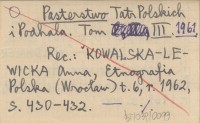 Pasterstwo Tatr Polskich
i Podhala. Tom III 1961
Rec.: KOWALSKA-LE-
WICKA Anna, Etnografia
Polska (Wrocław) t. 6, r. 1962,
s. 430-432.